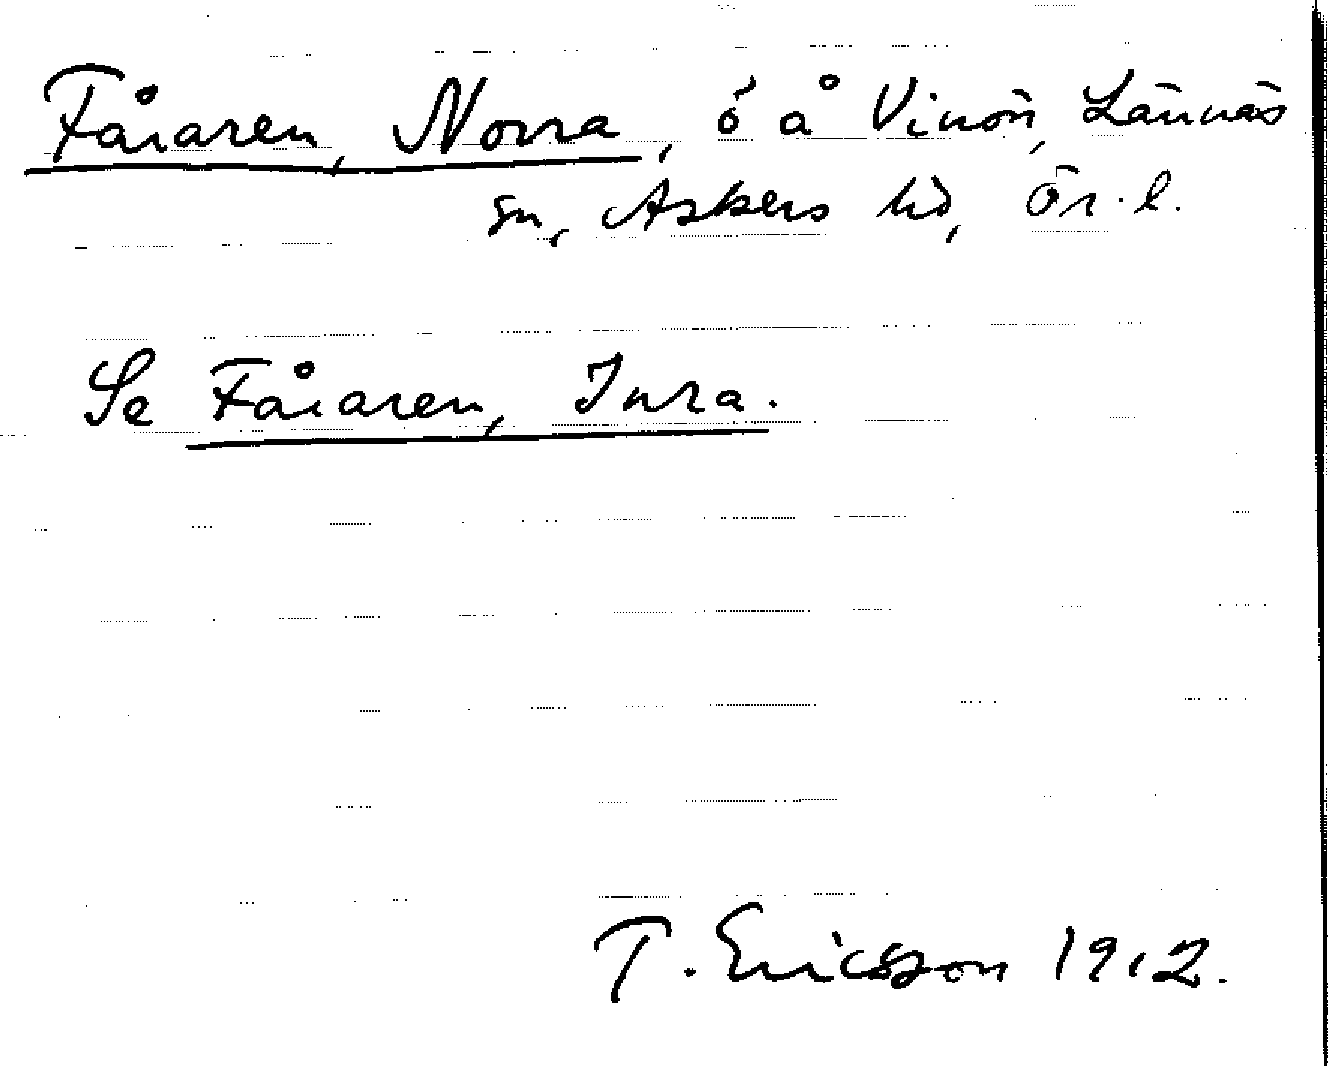 Fåraren, Norra, ö å Vinön, Lännäs
sn, Askers hd, Ör.l.
Se Fåraren, Inra.
T. Ericsson 1912.